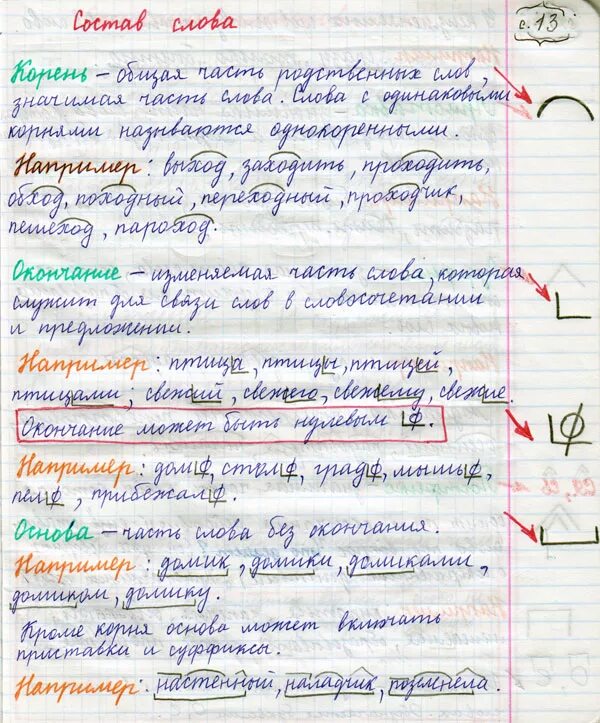 Состав слова
с. 13
Корень – общая часть родственных слов,
значимая часть слова. Слова с одинаковыми
корнями называются однокоренными.
Например: выход, заходить, проходить,
обход, походный, переходный, проходчик,
пешеход, пароход.
Окончание – изменяемая часть слова, которая
служит для связи слов в словосочетании
и предложении.
Например: птица, птицы, птицей,
птицами, свежий, свежего, свежему, свежие.
Окончание может быть нулевым ∅.
∅
Например: дом∅, стол∅, град∅, мышь∅,
пел∅, прибежал∅.
Основа – часть слова без окончания.
Например: домик, домики, домиками,
домиком, домику.
Кроме корня основа может включать
приставки и суффиксы.
Например: настенный, наладчик, позеленела.